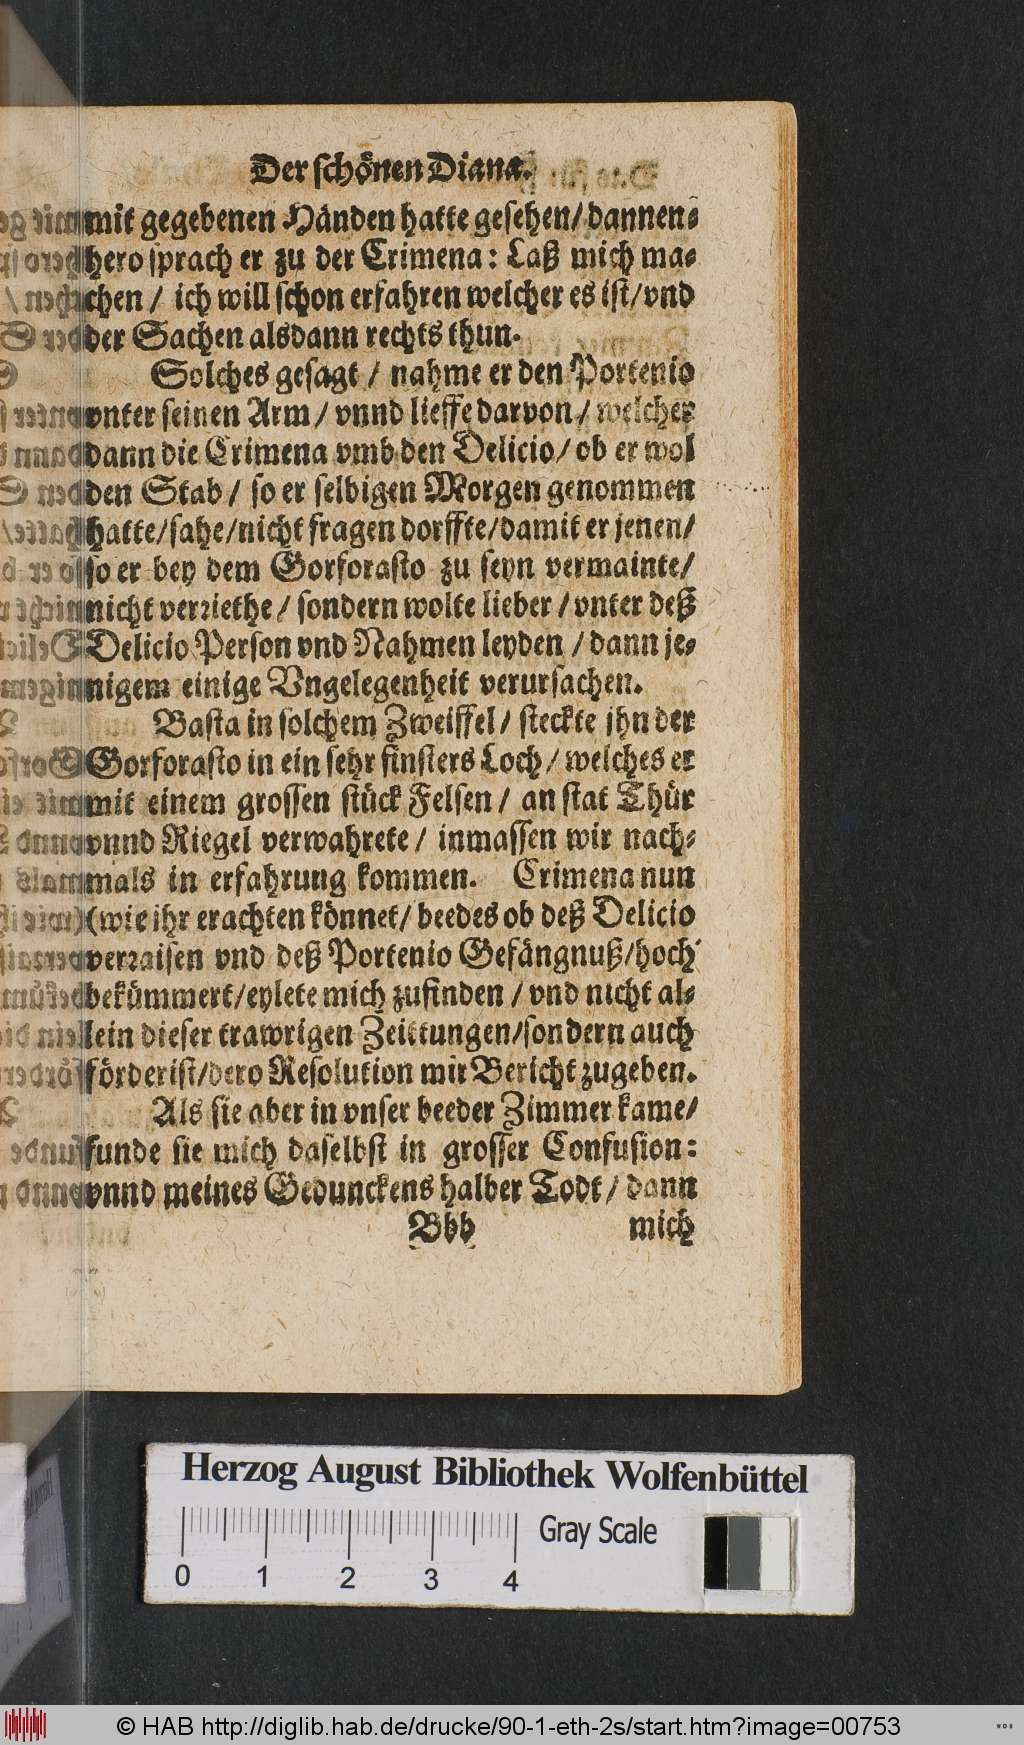 Der schönen Diana.
mit gegebenen Händen hatte gesehen/ dannen-
hero sprach er zu der Crimena: Laß mich ma-
chen / ich will schon erfahren welcher es ist/ vnd
der Sachen alsdann rechts thun.
Solches gesagt / nahme er den Portenio
vnter seinen Arm / vnnd lieffe darvon / welcher
dann die Crimena vmb den Delicio / ob er wol
den Stab / so er selbigen Morgen genommen
hatte/sahe/nicht fragen dorffte/damit er jenen/
so er bey dem Gorforasto zu seyn vermainte/
nicht verriethe / sondern wolte lieber / vnter deß
Delicio Person vnd Nahmen leyden / dann je-
nigem einige Vngelegenheit verursachen.
Basta in solchem Zweiffel / steckte jhn der
Gorforasto in ein sehr finsters Loch / welches er
mit einem grossen stück Felsen / an stat Thür
vnnd Riegel verwahrete / inmassen wir nach-
mals in erfahrung kommen. Crimena nun
(wie ihr erachten könnet/ beedes ob deß Delicio
verraisen vnd deß Portenio Gefängnuß/hoch
bekümmert/eylete mich zufinden / vnd nicht al-
lein dieser trawrigen Zeittungen/sondern auch
förderist/dero Resolution mir Bericht zugeben.
Als sie aber in vnser beeder Zimmer kame/
funde sie mich daselbst in grosser Confusion:
vnnd meines Gedunckens halber Todt / dann
Bbb mich
Herzog August Bibliothek Wolfenbüttel
Gray Scale
0 1 2 3 4
© HAB http://diglib.hab.de/drucke/90-1-eth-2s/start.htm?image=00753